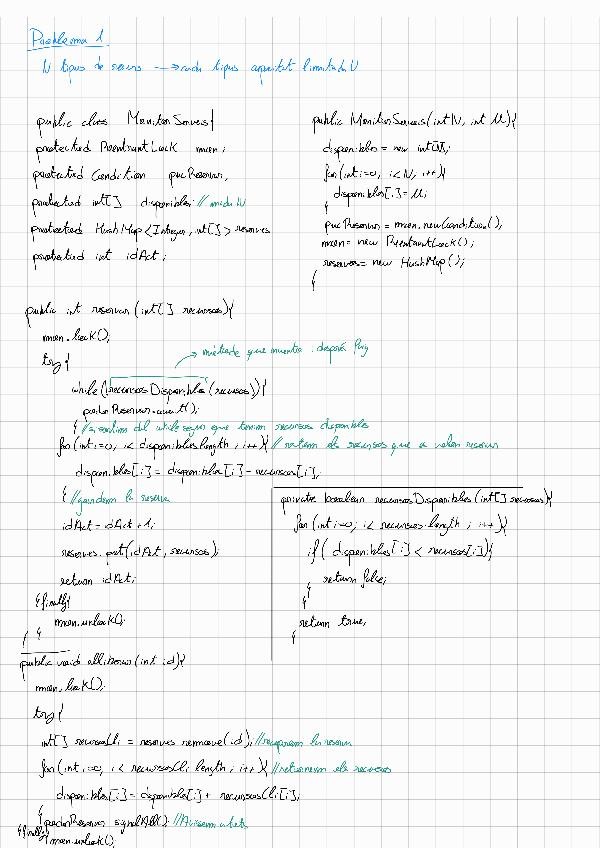 Problema 1
N tipus de serveis → cada tipus capacitat limitada U
public class MonitorServeis{
protected ReentrantLock mon;
protected Condition pucReservar;
protected int[] disponibles; // mida N
protected HashMap<Integer, int[]> reserves
protected int idAct;
public MonitorServeis(int N, int U){
disponibles = new int[N];
for(int i=0, i<N, i++){
disponibles[i]=U;
}
pucReservar = mon.newCondition();
mon = new ReentrantLock();
reserves = new HashMap();
}
public int reservar (int[] recursos){
mon.lock();
try{
→ mètode que
while(!recursosDisponibles(recursos)){
.await();
} //si sortim del while segur que tenim recursos disponibles
for(int i=0, i<disponibles.length, i++){ // restem els recursos que es volen reservar
disponibles[i] = disponibles[i] - recursos[i];
} //guardem la reserva
idAct = idAct + 1;
reserves.put(idAct, recursos);
return idAct;
}finally{
mon.unlock();
}
}
private boolean recursosDisponibles(int[] recursos){
for(int i=0; i<recursos.length; i++){
if( disponibles[i] < recursos[i]){
return false;
}
}
return true;
}
public void alliberar(int id){
mon.lock();
try{
int[] recursosAll = reserves.remove(id); //recuperem la reserva
for(int i=0; i<recursosAll.length; i++){ //retornem els recursos
disponibles[i] = disponibles[i] + recursosAll[i];
} .signalAll(); //Avisem a tots
}finally{
mon.unlock();